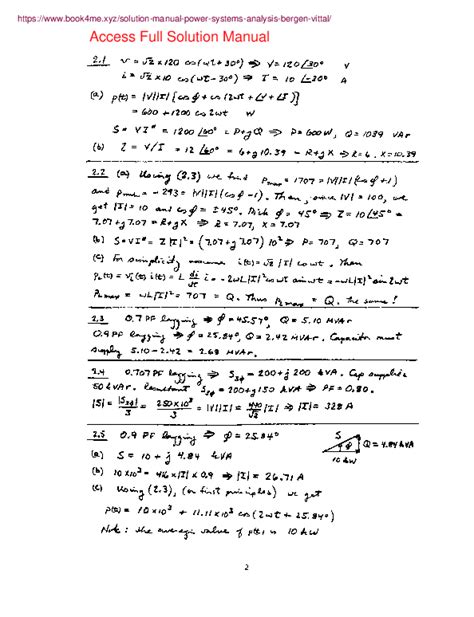 https://www.book4me.xyz/solution-manual-power-systems-analysis-bergen-vittal/
Access Full Solution Manual
2.1 v = √2 x 120 cos(ωt + 30°) ⇒ V = 120 /30° V
i = √2 x 10 cos(ωt - 30°) ⇒ I = 10 /-30° A
(a) p(t) = |V||I| [cos φ + cos (2ωt + /V + /I)]
= 600 + 1200 cos 2ωt W
S = VI* = 1200 /60° = P + jQ ⇒ P = 600 W, Q = 1039 VAr
(b) Z = V/I = 12 /60° = 6 + j 10.39 = R + jX ⇒ R = 6, X = 10.39
2.2 (a) Using (2.3) we find Pmax = 1707 = |V||I| (cos φ + 1)
and Pmin = -293 = |V||I| (cos φ - 1). Then, since |V| = 100, we
get |I| = 10 and φ = ±45°. Pick φ = 45° ⇒ Z = 10 /45° =
7.07 + j 7.07 = R + jX ⇒ R = 7.07, X = 7.07
(b) S = VI* = Z |I|² = (7.07 + j 7.07) 10² ⇒ P = 707, Q = 707
(c) For simplicity assume i(t) = √2 |I| cos ωt. Then
pL(t) = vL(t) i(t) = L di/dt i = -2ωL|I|² cos ωt sin ωt = -ωL|I|² sin 2ωt
PLmax = ωL|I|² = 707 = Q. Thus PLmax = Q, the same!
2.3 0.7 PF lagging ⇒ φ = 45.57°, Q = 5.10 MVAr
0.9 PF lagging ⇒ φ = 25.84°, Q = 2.42 MVAr. Capacitor must
supply 5.10 - 2.42 = 2.68 MVAr.
2.4 0.707 PF lagging ⇒ S3φ = 200 + j 200 kVA. Cap supplies
50 kVAr. Resultant S3φ = 200 + j 150 kVA ⇒ PF = 0.80.
|S| = |S3φ|/3 = 250 x 10³/3 = |V||I| = 440/√3 |I| ⇒ |I| = 328 A
2.5 0.9 PF lagging ⇒ φ = 25.84°
S Q = 4.84 kVA
10 kW
(a) S = 10 + j 4.84 kVA
(b) 10 x 10³ = 416 x |I| x 0.9 ⇒ |I| = 26.71 A
(c) Using (2.3), (or first principles) we get
p(t) = 10 x 10³ + 11.11 x 10³ cos (2ωt + 25.84°)
Note: the average value of p(t) is 10 kW
2